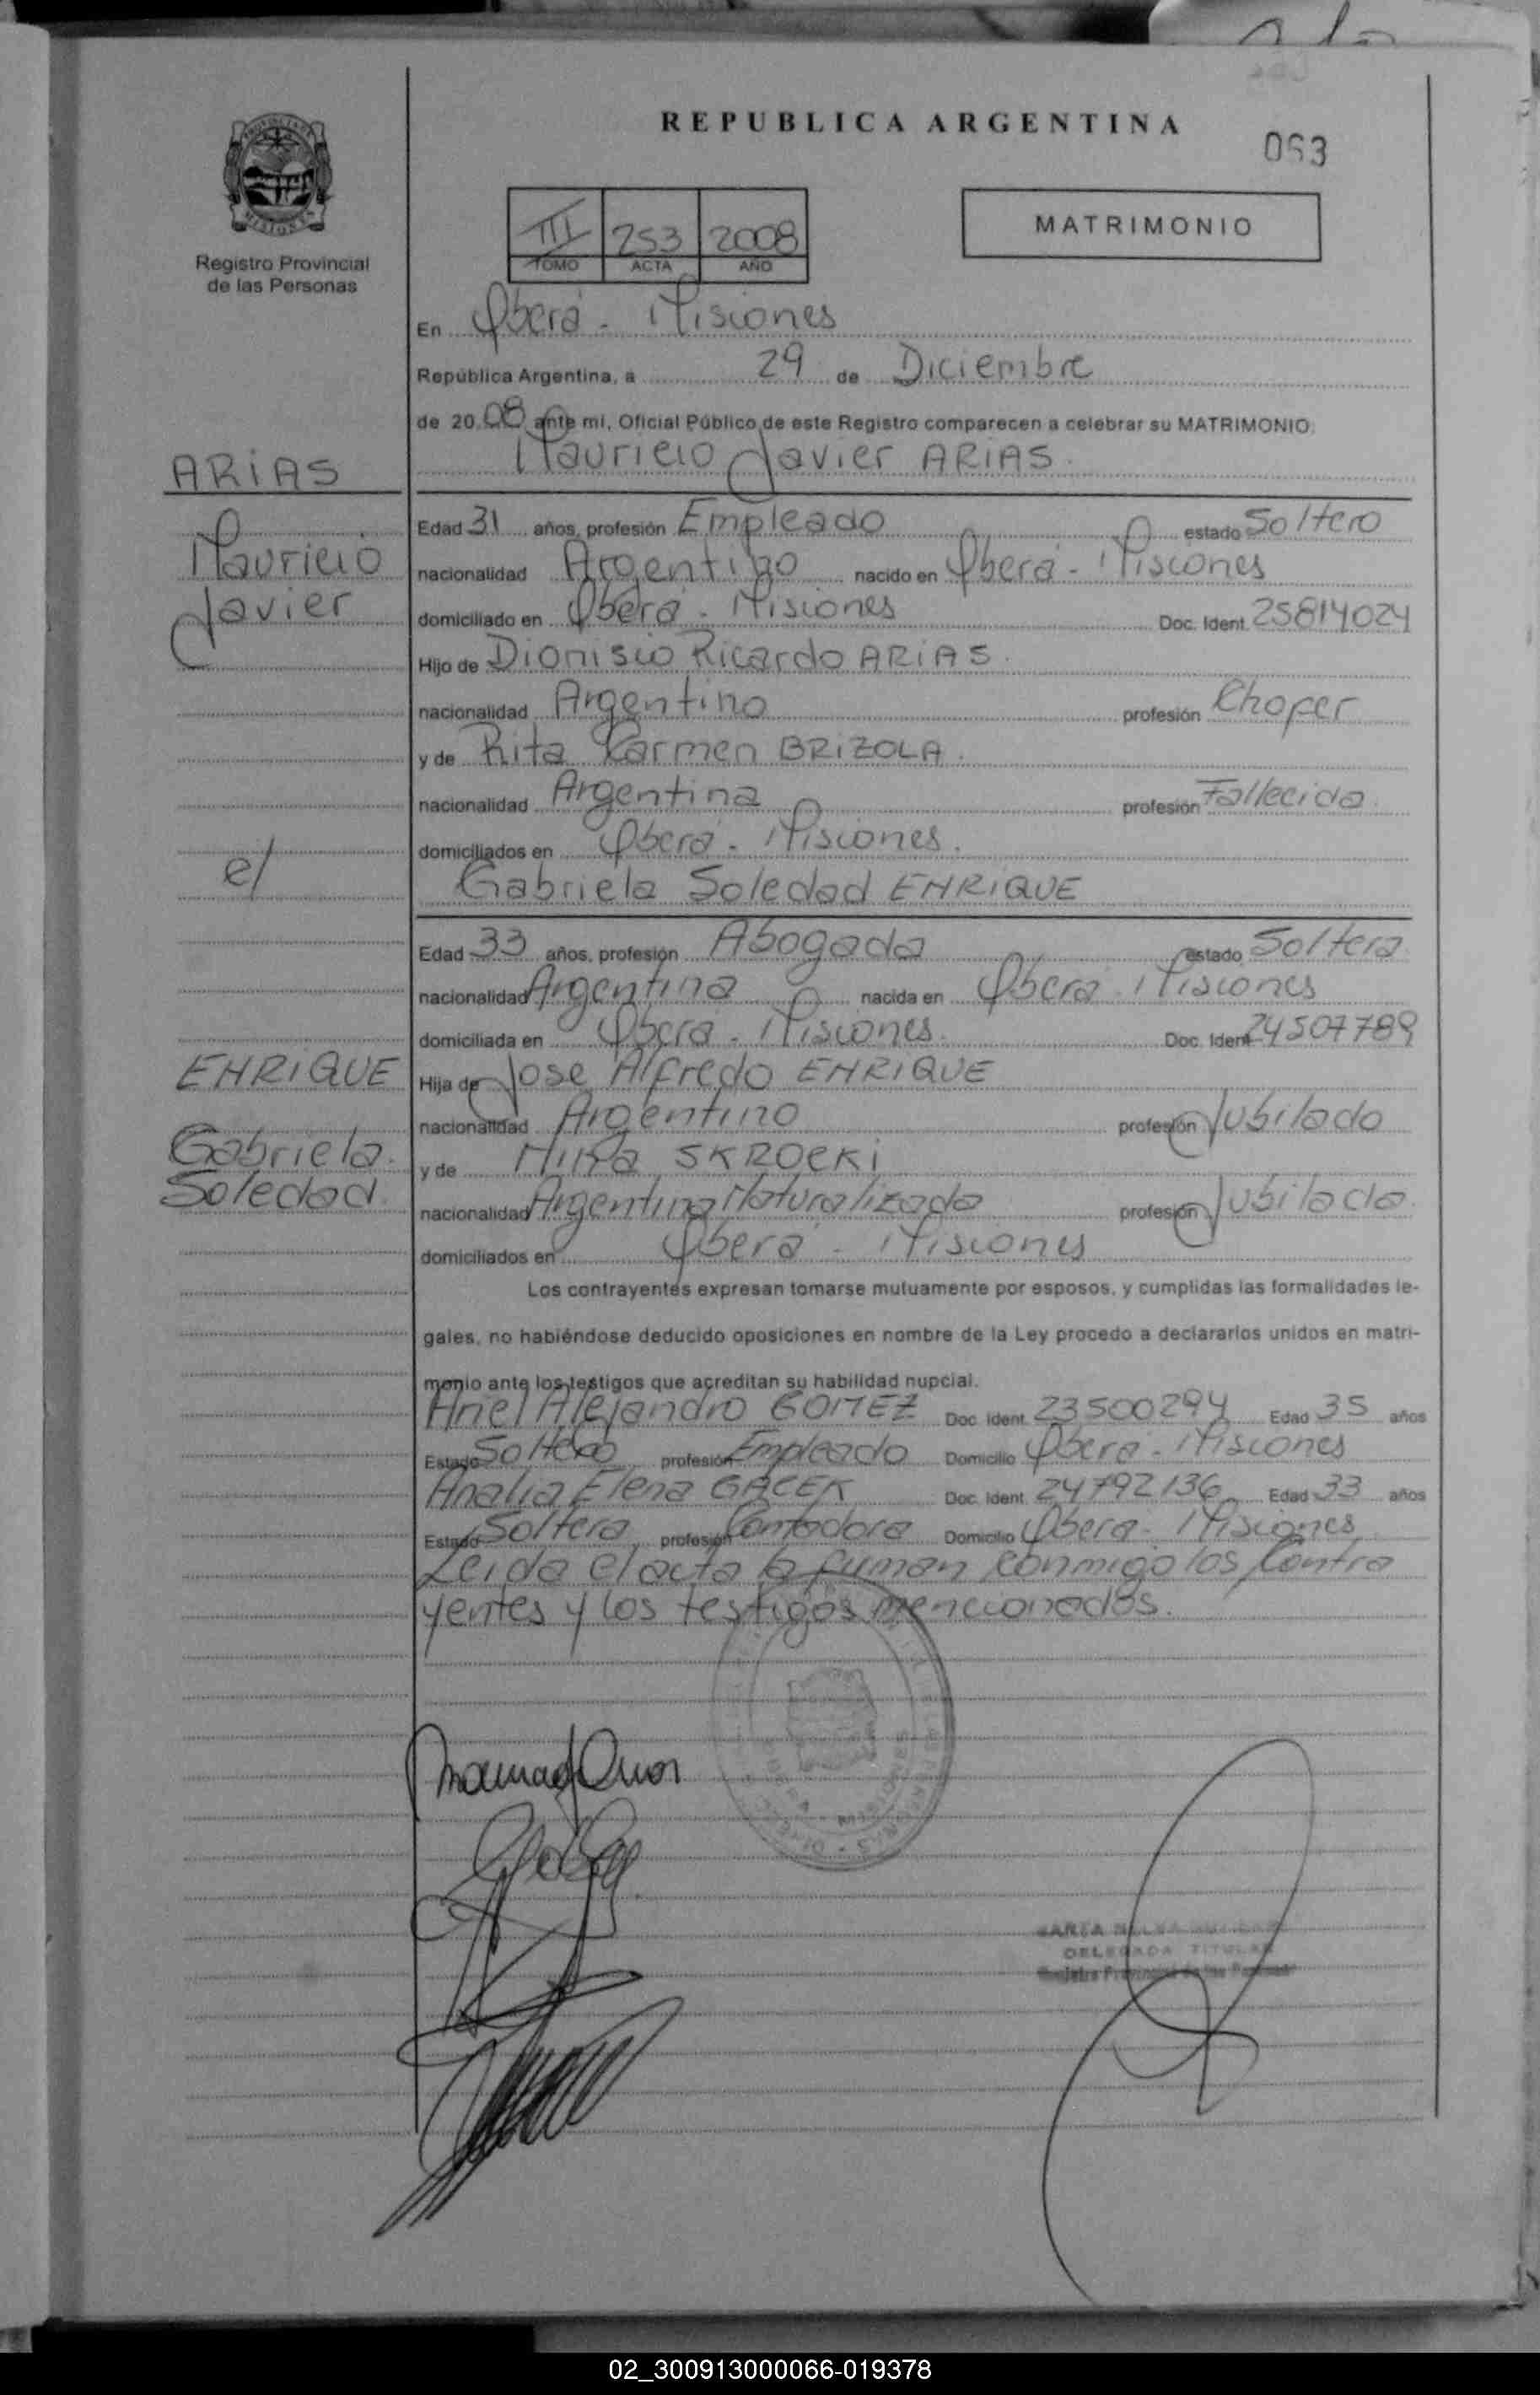 REPUBLICA ARGENTINA
063
Registro Provincial
de las Personas
III 253 2008
TOMO ACTA AÑO
MATRIMONIO
En Oberá - Misiones
República Argentina, a 29 de Diciembre
de 20 08 ante mi, Oficial Público de este Registro comparecen a celebrar su MATRIMONIO:
Mauricio Javier ARIAS.
ARIAS
Mauricio
Javier
Edad 31 años, profesión Empleado estado Soltero
nacionalidad Argentino nacido en Oberá - Misiones
domiciliado en Oberá - Misiones Doc. Ident. 25814024
Hijo de Dionisio Ricardo ARIAS.
nacionalidad Argentino profesión Chofer
y de Rita Carmen BRIZOLA.
nacionalidad Argentina profesión Fallecida.
domiciliados en Oberá - Misiones.
c/
Gabriela Soledad ENRIQUE
Edad 33 años, profesión Abogada estado Soltera
nacionalidad Argentina nacida en Oberá - Misiones
domiciliada en Oberá - Misiones. Doc. Ident. 24507789
ENRIQUE
Gabriela.
Soledad.
Hija de Jose Alfredo ENRIQUE
nacionalidad Argentino profesión Jubilado
y de SKROCKI
nacionalidad Argentina Naturalizada profesión Jubilada.
domiciliados en Oberá - Misiones
Los contrayentes expresan tomarse mutuamente por esposos, y cumplidas las formalidades le-
gales, no habiéndose deducido oposiciones en nombre de la Ley procedo a declararlos unidos en matri-
monio ante los testigos que acreditan su habilidad nupcial.
Ariel Alejandro GOMEZ Doc. Ident. 23500294 Edad 35 años
Estado Soltero profesión Empleado Domicilio Oberá - Misiones
Analia Elena GACEK Doc. Ident. 24792136 Edad 33 años
Estado Soltera profesión Contadora Domicilio Oberá - Misiones
Leida el acta la firman conmigo los Contra
yentes y los testigos mencionados.
DELEGADA TITULAR
Registro Provincial de las Personas
02_300913000066-019378